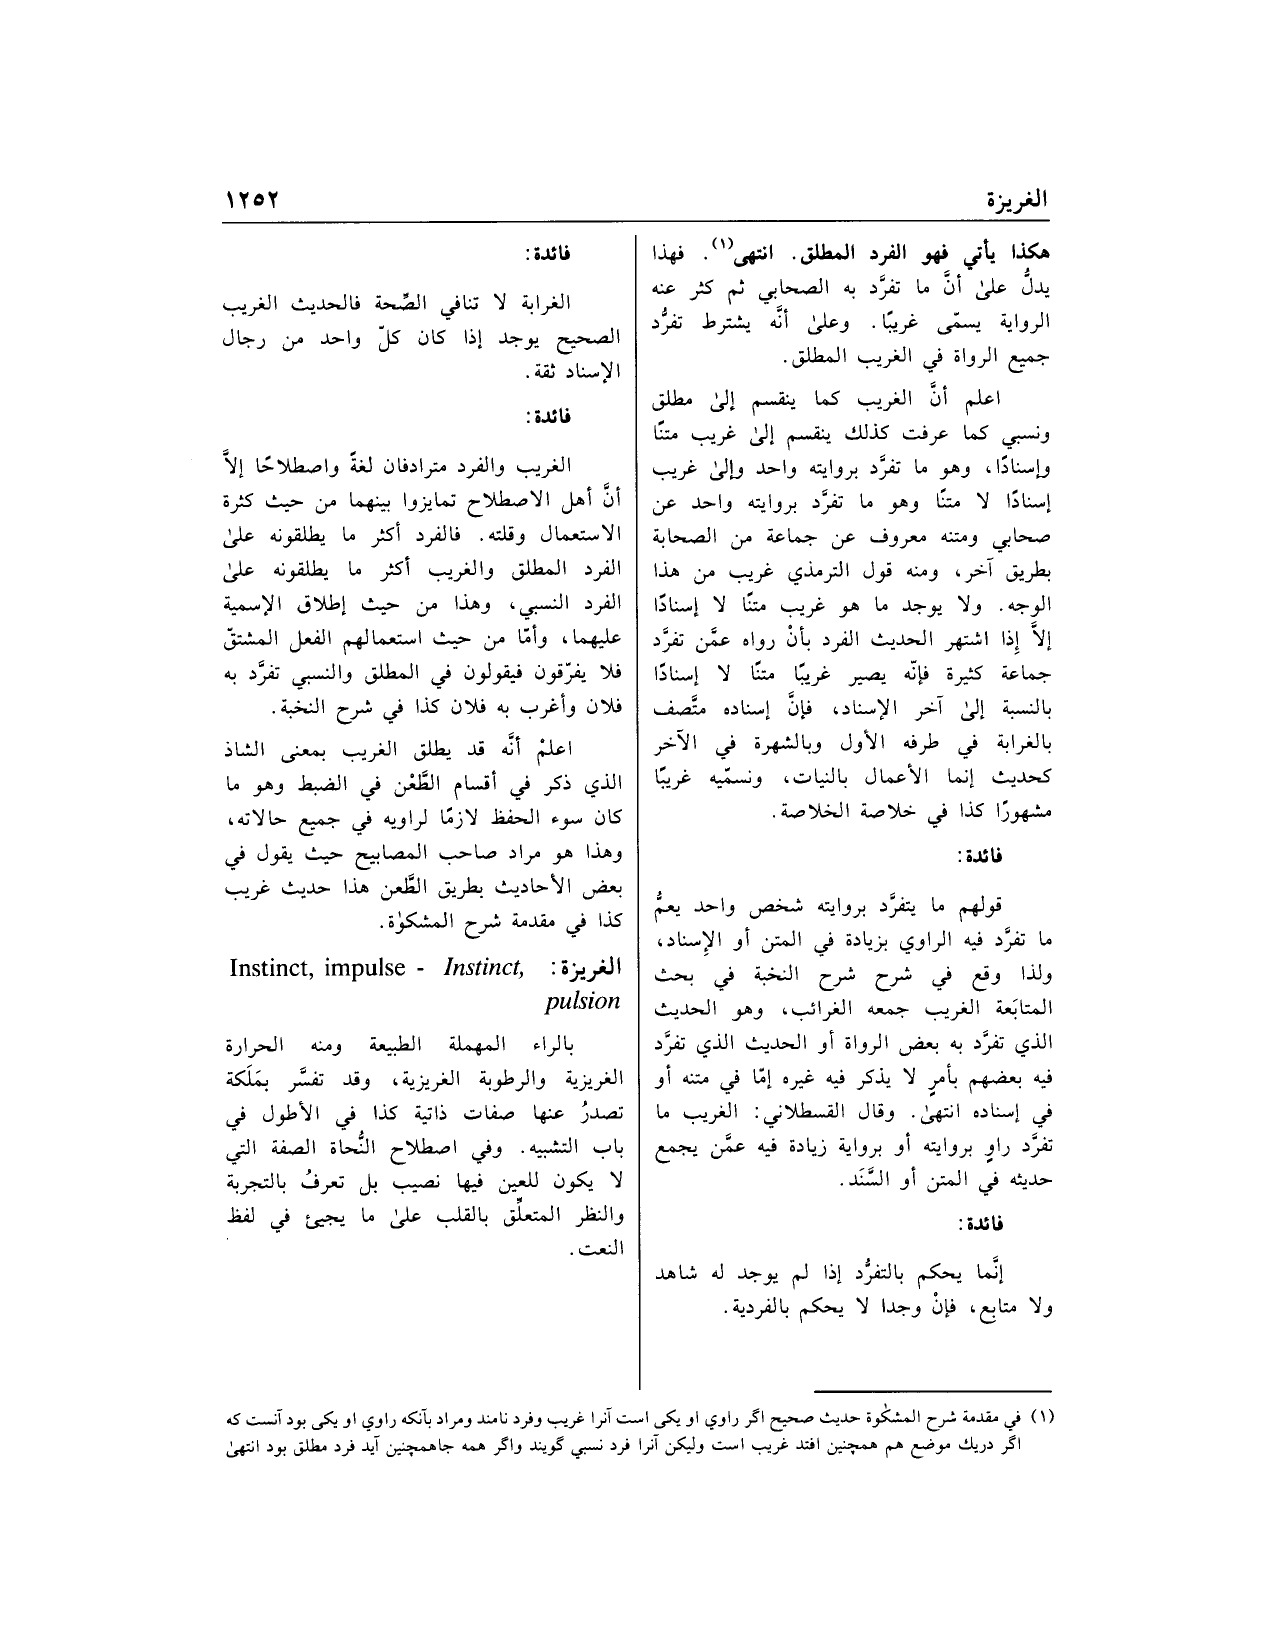 الغريزة
١٢٥٢
هكذا يأتي فهو الفرد المطلق. انتهى(١). فهذا
يدلُّ علىٰ أنَّ ما تفرَّد به الصحابي ثم كثر عنه
الرواية يسمّى غريبًا. وعلىٰ أنَّه يشترط تفرُّد
جميع الرواة في الغريب المطلق.
اعلم أنَّ الغريب كما ينقسم إلىٰ مطلق
ونسبي كما عرفت كذلك ينقسم إلىٰ غريب متنًا
وإسنادًا، وهو ما تفرَّد بروايته واحد وإلىٰ غريب
إسنادًا لا متنًا وهو ما تفرَّد بروايته واحد عن
صحابي ومتنه معروف عن جماعة من الصحابة
بطريق آخر، ومنه قول الترمذي غريب من هذا
الوجه. ولا يوجد ما هو غريب متنًا لا إسنادًا
إلاَّ إِذا اشتهر الحديث الفرد بأنْ رواه عمَّن تفرَّد
جماعة كثيرة فإنّه يصير غريبًا متنًا لا إسنادًا
بالنسبة إلىٰ آخر الإسناد، فإنَّ إسناده متَّصف
بالغرابة في طرفه الأول وبالشهرة في الآخر
كحديث إنما الأعمال بالنيات، ونسمّيه غريبًا
مشهورًا كذا في خلاصة الخلاصة.
فائدة:
قولهم ما يتفرَّد بروايته شخص واحد يعمُّ
ما تفرَّد فيه الراوي بزيادة في المتن أو الإِسناد،
ولذا وقع في شرح شرح النخبة في بحث
المتابَعة الغريب جمعه الغرائب، وهو الحديث
الذي تفرَّد به بعض الرواة أو الحديث الذي تفرَّد
فيه بعضهم بأمرٍ لا يذكر فيه غيره إمّا في متنه أو
في إسناده انتهىٰ. وقال القسطلاني: الغريب ما
تفرَّد راوٍ بروايته أو برواية زيادة فيه عمَّن يجمع
حديثه في المتن أو السَّنَد.
فائدة:
إنَّما يحكم بالتفرُّد إذا لم يوجد له شاهد
ولا متابع، فإنْ وجدا لا يحكم بالفردية.
فائدة:
الغرابة لا تنافي الصِّحة فالحديث الغريب
الصحيح يوجد إذا كان كلّ واحد من رجال
الإسناد ثقة.
فائدة:
الغريب والفرد مترادفان لغةً واصطلاحًا إلاَّ
أنَّ أهل الاصطلاح تمايزوا بينهما من حيث كثرة
الاستعمال وقلته. فالفرد أكثر ما يطلقونه علىٰ
الفرد المطلق والغريب أكثر ما يطلقونه علىٰ
الفرد النسبي، وهذا من حيث إطلاق الإسمية
عليهما، وأمّا من حيث استعمالهم الفعل المشتقّ
فلا يفرّقون فيقولون في المطلق والنسبي تفرَّد به
فلان وأغرب به فلان كذا في شرح النخبة.
اعلمْ أنَّه قد يطلق الغريب بمعنى الشاذ
الذي ذكر في أقسام الطَّعْن في الضبط وهو ما
كان سوء الحفظ لازمًا لراويه في جميع حالاته،
وهذا هو مراد صاحب المصابيح حيث يقول في
بعض الأحاديث بطريق الطَّعن هذا حديث غريب
كذا في مقدمة شرح المشكوٰة.
الغريزة: Instinct, impulse - Instinct,
pulsion
بالراء المهملة الطبيعة ومنه الحرارة
الغريزية والرطوبة الغريزية، وقد تفسَّر بمَلَكة
تصدرُ عنها صفات ذاتية كذا في الأطول في
باب التشبيه. وفي اصطلاح النُّحاة الصفة التي
لا يكون للعين فيها نصيب بل تعرفُ بالتجربة
والنظر المتعلِّق بالقلب علىٰ ما يجيئ في لفظ
النعت.
(١) في مقدمة شرح المشكٰوة حديث صحيح اگر راوي او يكى است آنرا غريب وفرد نامند ومراد بآنكه راوي او يكى بود آنست كه
اگر دريك موضع هم همچنين افتد غريب است وليكن آنرا فرد نسبي گويند واگر همه جاهمچنين آيد فرد مطلق بود انتهىٰ